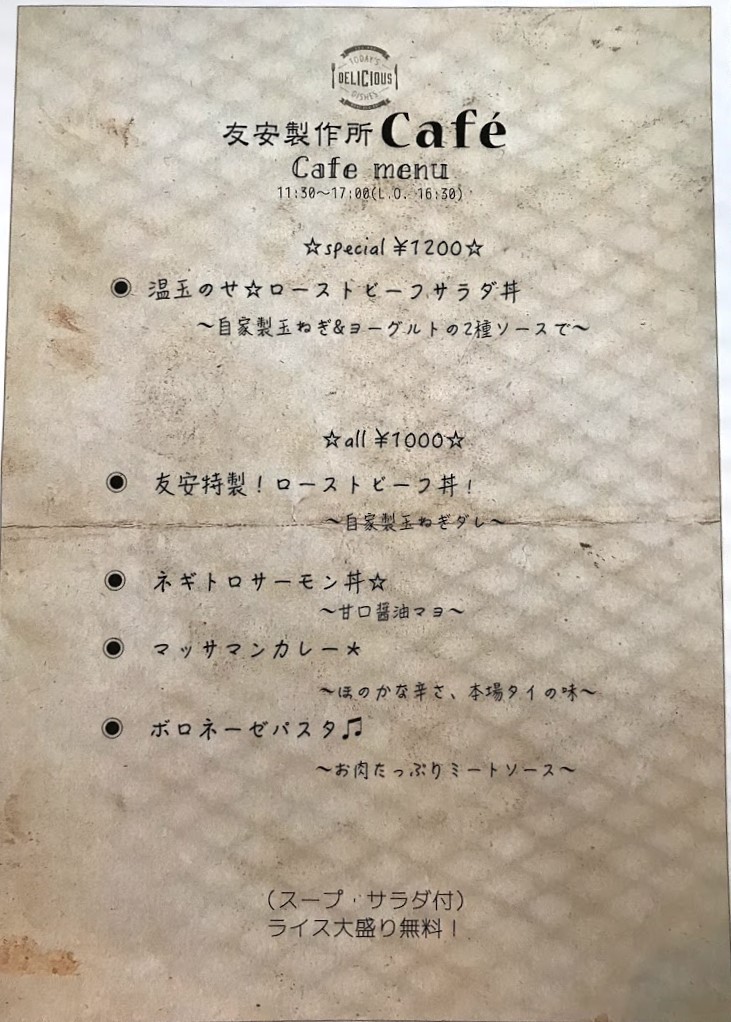 TODAY'S
DELICIOUS
DISHES
友安製作所Café
Cafe menu
11:30〜17:00(L.O. 16:30)
☆special ¥1200☆
◉ 温玉のせ☆ローストビーフサラダ丼
〜自家製玉ねぎ&ヨーグルトの2種ソースで〜
☆all ¥1000☆
◉ 友安特製！ローストビーフ丼！
〜自家製玉ねぎダレ〜
◉ ネギトロサーモン丼☆
〜甘口醤油マヨ〜
◉ マッサマンカレー＊
〜ほのかな辛さ、本場タイの味〜
◉ ボロネーゼパスタ♫
〜お肉たっぷりミートソース〜
（スープ・サラダ付）
ライス大盛り無料！